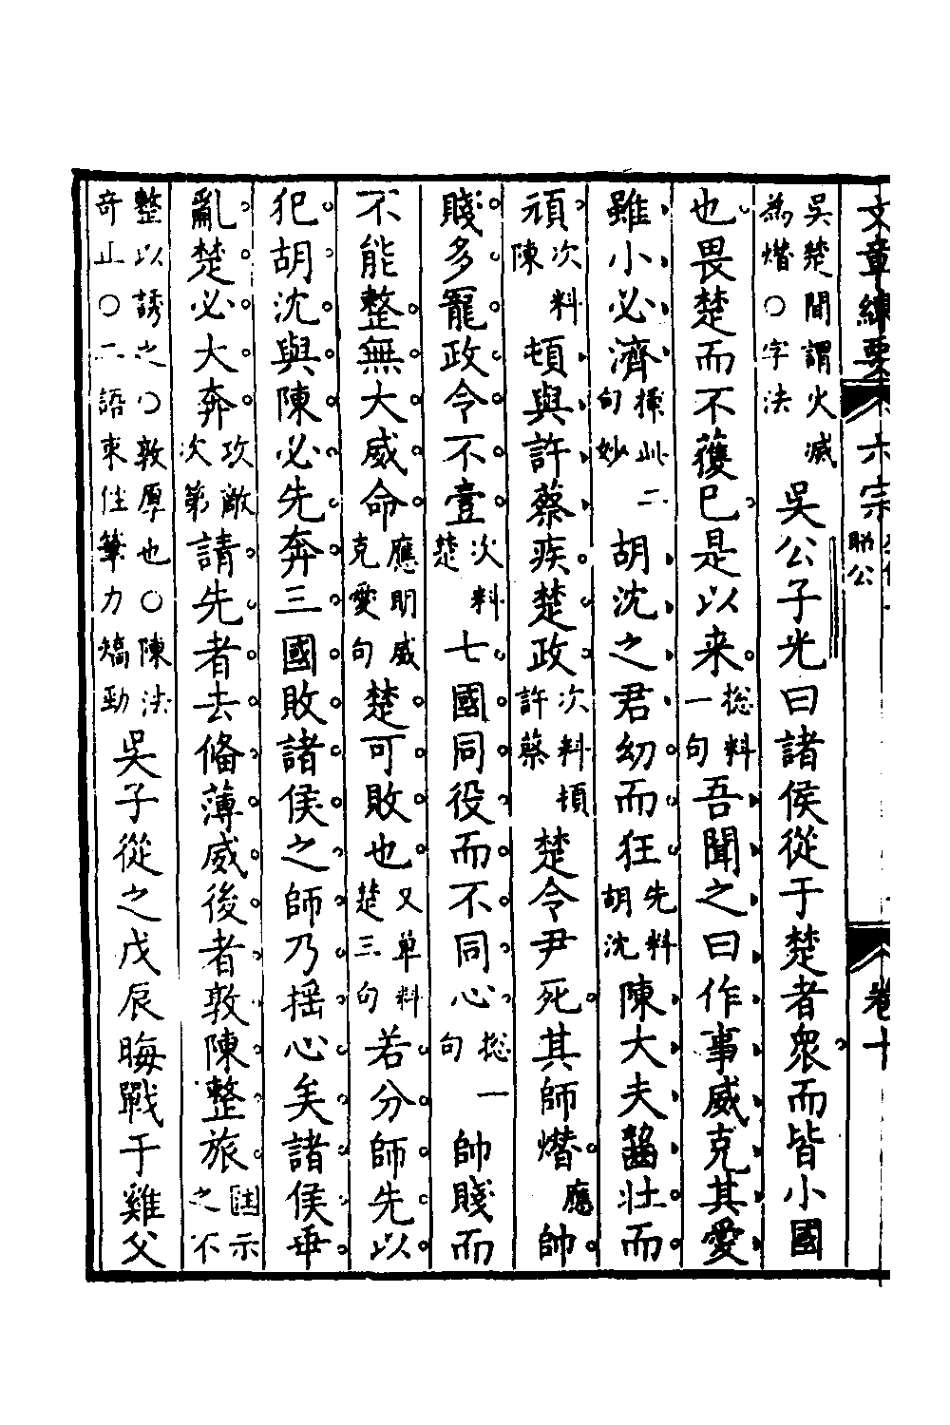 文章練要 六宗 昭公 卷十
吳楚間謂火滅為熸〇字法 吳公子光曰諸侯從于楚者衆而皆小國
也畏楚而不獲已是以来 總料一句 吾聞之曰作事威克其愛
雖小必濟 揷此二句妙 胡沈之君幼而狂 先料胡沈 陳大夫齧壯而
頑 次料陳 頓與許蔡疾楚政 次料頓許蔡 楚令尹死其師熸 應 帥
賤多寵政令不壹 次料楚 七國同役而不同心 總一句 帥賤而
不能整無大威命 應明威克愛句 楚可敗也 又單料楚三句 若分師先以
犯胡沈與陳必先奔三國敗諸侯之師乃揺心矣諸侯乖
亂楚必大奔 攻敵次第 請先者去備薄威後者敦陳整旅 註示之不
整以誘之〇敦厚也〇陳法奇止〇二語束住筆力矯勁 吳子從之戊辰晦戰于雞父